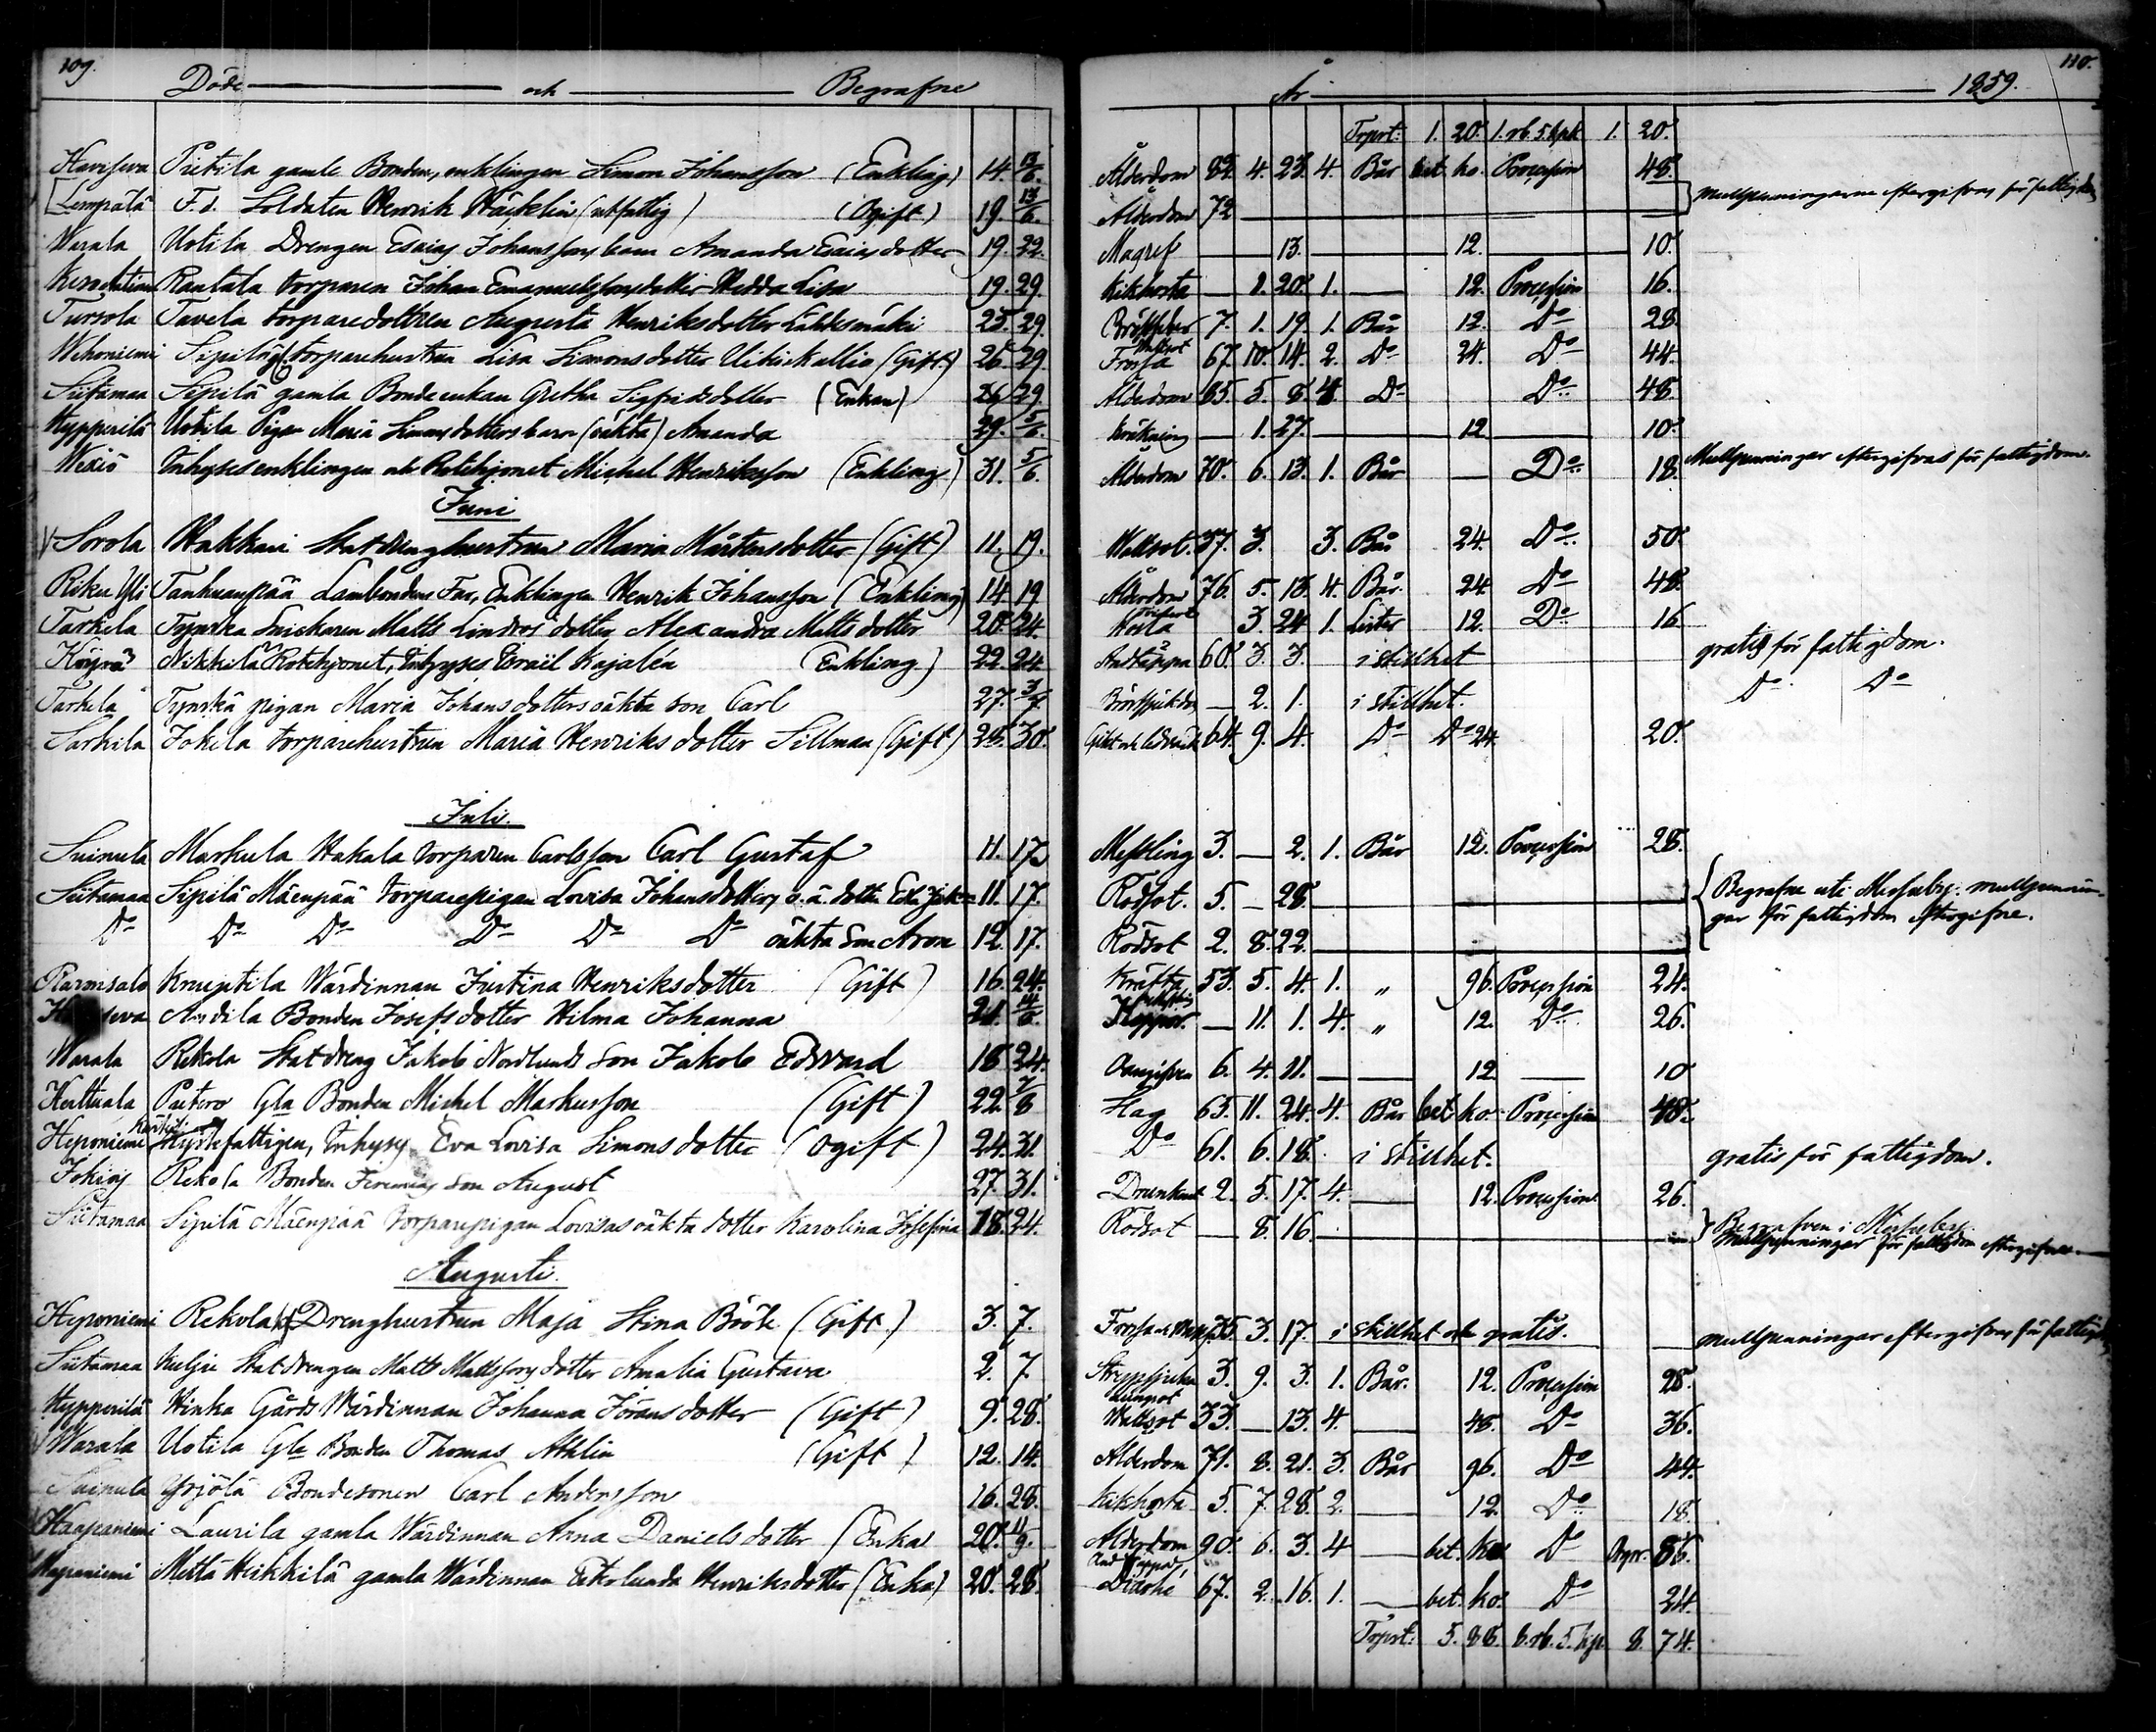 109. Döde och Begrafne År 1859. 110.
Trsprt: 1. 20. 1. rb. 5. kpk 1. 20.
Haviseva Pietila gamle Bonden, enklingen Simon Johansson (Enkling) 14. 13/6. Ålderdom 82. 4. 23. 4. Bår bet. ko. Procession 48.
Lempälä F.d. Soldaten Henrik Häcklin (utfattig) (Ogift) 19. 13/6. Ålderdom 72 Mullpenningarne eftergifvas för fattigdom
Warala Uotila Drengen Esaias Johanssons barn Amanda Esaiasdotter 19. 22. Magref 13. 12. 10.
Rautala torparen Johan Emanuelssons dotter Hedda Lisa 19. 29. Kikhosta 1. 20. 1. 12. Procession 16.
Tursola Tavela torparedottren Augusta Henriksdotter Lähdesmäki 25. 29. 7. 1. 19. 1. Bår 12. Do 28.
Wehoniemi Sipilä torparehustrun Lisa Simonsdotter (Gift) 26. 29. Frossa Wattsot 67. 10. 14. 2. Do 24. Do 44.
Siitamaa Sipilä gamla Bondeenkan Gretha Sigfridsdotter (Enkan) 26 29. Ålderdom 85. 5. 8. 4. Do Do 48.
Hypperilä Uotila Pigan Maria Simonsdotters barn (oäkta) Amanda 29. 5/6. Kräkning 1. 27. 12 10.
Wexiö Inhysesenklingen och Rotehjonet Michel Henriksson (Enkling) 31. 5/6. Ålderdom 70. 6. 13. 1. Bår Do 18. Mullpenningar eftergifvas för fattigdom.
Juni
Sorola Hakkari Statdrenghustrun Maria Mårtensdotter (Gift) 11. 19. Wattsot. 37. 3. 3. Bår 24. Do 50.
Riku Yli Tanhuanpää Lambondens Far, Enklingen Henrik Johansson (Enkling) 14. 19 Ålderdom 76. 5. 13. 4. Bår. 24. Do 48.
Tarkela Tynska Snickaren Matts Lindros dotter Alexandra Mattsdotter 20. 24. Hosta 3. 24 1. Lister 12. Do 16
Nikkilä Rotehjonet, Inhyses Esraël Kajalén (Enkling.) 22. 24 Andtäppa 60. 3. 3. i stillhet gratis för fattigdom.
Tarkela Tynskä pigan Maria Johansdotters oäkta son Carl 27. 3/7. 2. 1. i stillhet. Do Do
Sarkila Jokela torparehustrun Maria Henriksdotter Sillman (Gift) 25. 30. 64. 9. 4. Do Do 24. 20.
Juli.
Suinula Markula Hakala torparen Carlsson Carl Gustaf 11. 17. Messling 3. 2. 1. Bår 12. Procession 28.
Siitamaa Sipilä Mäenpää torparepigan Lovisa Johansdotters o.ä. dotter 11. 17. Rödsot. 5. 28. Begrafne uti Messuby. mullpennin-
Do Do Do Do Do Do oäkta Son Aron 12. 17. Rödsot 2. 8. 22. gar för fattigdom eftergifne.
Knuutila Wärdinnan Justina Henriksdotter (Gift) 16. 24. Kräfta 53. 5. 4. 1. „ 96. Procession 24.
Andila Bonden Josefs dotter Hilma Johanna 21. 14/8. 11. 1. 4. „ 12. Do 26.
Warala Rekola Statdreng Jakob Nordlunds Son Jakob Edvard 18 24. 6. 4. 11. 12 10
Kerttuala Puttero Gla Bonden Michel Markusson (Gift) 22. 7/8 Slag 65. 11. 24. 4. Bår bet ko. Procession 48.
Heponiemi Hyskefattigen, Inhyses Eva Lovisa Simonsdotter (ogift) 24. 31. Do 61. 6. 18. i stillhet. gratis för fattigdom.
Jokiois Rekola Bonden son August 27. 31. Drunknat 2. 5. 17. 4. 12. Procession 26.
Siitamaa Sipilä Mäenpää torparepigan Lovisas oäkta dotter Karolina Josefina 18. 24. Rödsot 8. 16. Begrafven i Messuby.
Mullpenningar för fattigdom eftergifne.
Augusti.
Heponiemi Rekola Drenghustrun Maja Stina Böök (Gift) 3. 7. 35. 3. 17. i stillhet och gratis. mullpenningar eftergifvas för fattigdom
Siitamaa Kulju Statdrengen Matts Mattssons dotter Amalia Gustava 2. 7. Strypsjukan 3. 9. 3. 1. Bår. 12. Procession 28.
Hypperilä Hinka Gårds Wärdinnan Johanna Jöransdotter (Gift) 9. 28. Lungsot Wattsot 33. 13. 4. 48. Do 36.
Warala Uotila Gla Bonden Thomas Athlin (Gift) 12. 14. Ålderdom 71. 8. 21. 3. Bår 96. Do 44.
Suinula Yrjölä Bondesonen Carl Andersson 16. 28. Kikhosta 5. 7. 28. 2. 12. Do 18.
Haapaniemi Laurila gamla Wärdinnan Anna Danielsdotter (Enka) 20. 11/9. Ålderdom 90. 6. 3. 4 bet. ko Do 86.
Heikkilä gamla Wärdinnan Henriksdotter (Enka) 20. 28. 67. 2. 16. 1. bet. ko. Do 24.
Trsprt: 5. 88. 8. rb. 5. kp. 8. 74.